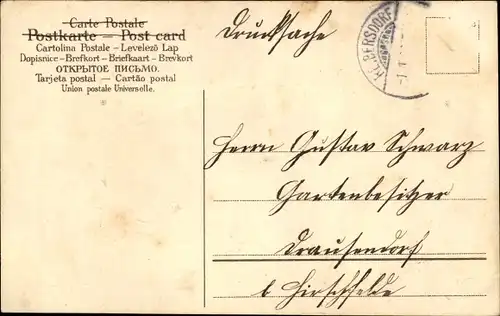 Carte Postale
Postkarte — Post card
Cartolina Postale - Levelező Lap
Dopisnice - Brefkort - Briefkaart - Brevkort
ОТКРЫТОЕ ПИСЬМО.
Tarjeta postal — Cartão postal
Union postale Universelle.
Drucksache
Herrn Gustav Schwarz
Gartenbesitzer
Drausendorf
b Hirschfelde